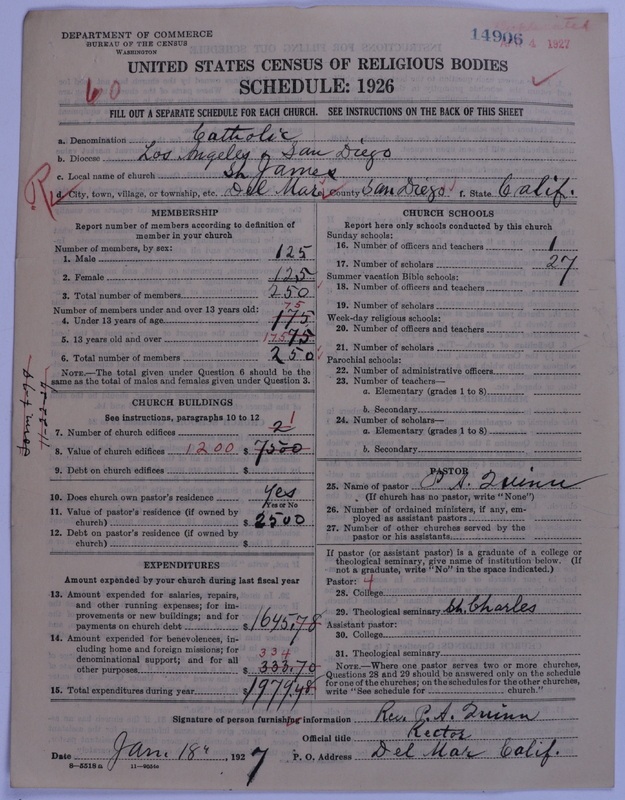 DEPARTMENT OF COMMERCE
BUREAU OF THE CENSUS
WASHINGTON
14906
4 1927
UNITED STATES CENSUS OF RELIGIOUS BODIES
SCHEDULE: 1926
60
FILL OUT A SEPARATE SCHEDULE FOR EACH CHURCH. SEE INSTRUCTIONS ON THE BACK OF THIS SHEET
a. Denomination Catholic
b. Diocese Los Angeles & San Diego
c. Local name of church St. James
d. City, town, village, or township, etc. Del Mar e. County San Diego f. State Calif.
MEMBERSHIP
Report number of members according to definition of
member in your church
Number of members, by sex:
1. Male 125
2. Female 125
3. Total number of members 250
Number of members under and over 13 years old:
75
4. Under 13 years of age 175
5. 13 years old and over 175 75
6. Total number of members 250
NOTE.—The total given under Question 6 should be the
same as the total of males and females given under Question 3.
CHURCH BUILDINGS
See instructions, paragraphs 10 to 12
7. Number of church edifices 2 1
8. Value of church edifices 1200 $ 7500
9. Debt on church edifices $
10. Does church own pastor's residence Yes
Yes or No
11. Value of pastor's residence (if owned by
church) $ 2500
12. Debt on pastor's residence (if owned by
church) $
EXPENDITURES
Amount expended by your church during last fiscal year
13. Amount expended for salaries, repairs,
and other running expenses; for im-
provements or new buildings; and for
payments on church debt $ 1645.78
14. Amount expended for benevolences, in-
cluding home and foreign missions; for
denominational support; and for all
334
other purposes $ 333.70
15. Total expenditures during year $ 1979.48
CHURCH SCHOOLS
Report here only schools conducted by this church
Sunday schools:
16. Number of officers and teachers 1
17. Number of scholars 27
Summer vacation Bible schools:
18. Number of officers and teachers
19. Number of scholars
Week-day religious schools:
20. Number of officers and teachers
21. Number of scholars
Parochial schools:
22. Number of administrative officers
23. Number of teachers—
a. Elementary (grades 1 to 8)
b. Secondary
24. Number of scholars—
a. Elementary (grades 1 to 8)
b. Secondary
PASTOR
25. Name of pastor P. A. Quinn
(If church has no pastor, write "None")
26. Number of ordained ministers, if any, em-
ployed as assistant pastors
27. Number of other churches served by the
pastor or his assistants
If pastor (or assistant pastor) is a graduate of a college or
theological seminary, give name of institution below. (If
not a graduate, write "No" in the space indicated.)
Pastor: 4
28. College
29. Theological seminary St. Charles
Assistant pastor:
30. College
31. Theological seminary
NOTE.—Where one pastor serves two or more churches,
Questions 28 and 29 should be answered only on the schedule
for one of the churches; on the schedules for the other churches,
write "See schedule for church."
Signature of person furnishing information Rev. P. A. Quinn
Official title Rector
Date Jan. 18, 1927 P. O. Address Del Mar Calif.
8—5518 a